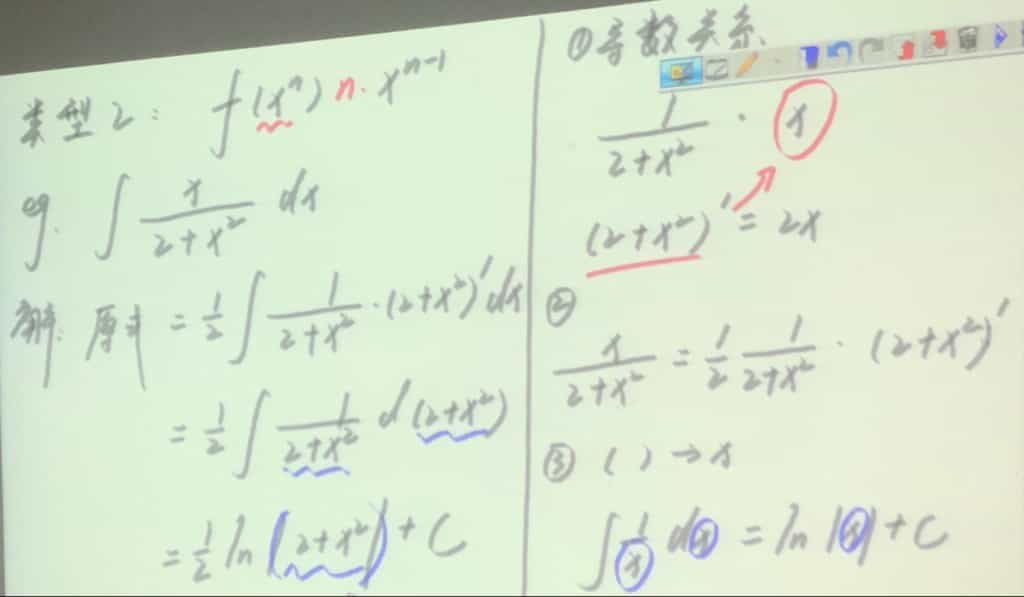 类型2: f(xⁿ) n·xⁿ⁻¹
eg. ∫ x/(2+x²) dx
解: 原式 = 1/2 ∫ 1/(2+x²) · (2+x²)′dx
= 1/2 ∫ 1/(2+x²) d(2+x²)
= 1/2 ln(2+x²) + C
① 导数关系
1/(2+x²) · x
(2+x²)′ = 2x
②
x/(2+x²) = 1/2 1/(2+x²) · (2+x²)′
③ ( ) → x
∫ 1/x dx = ln|x| + C